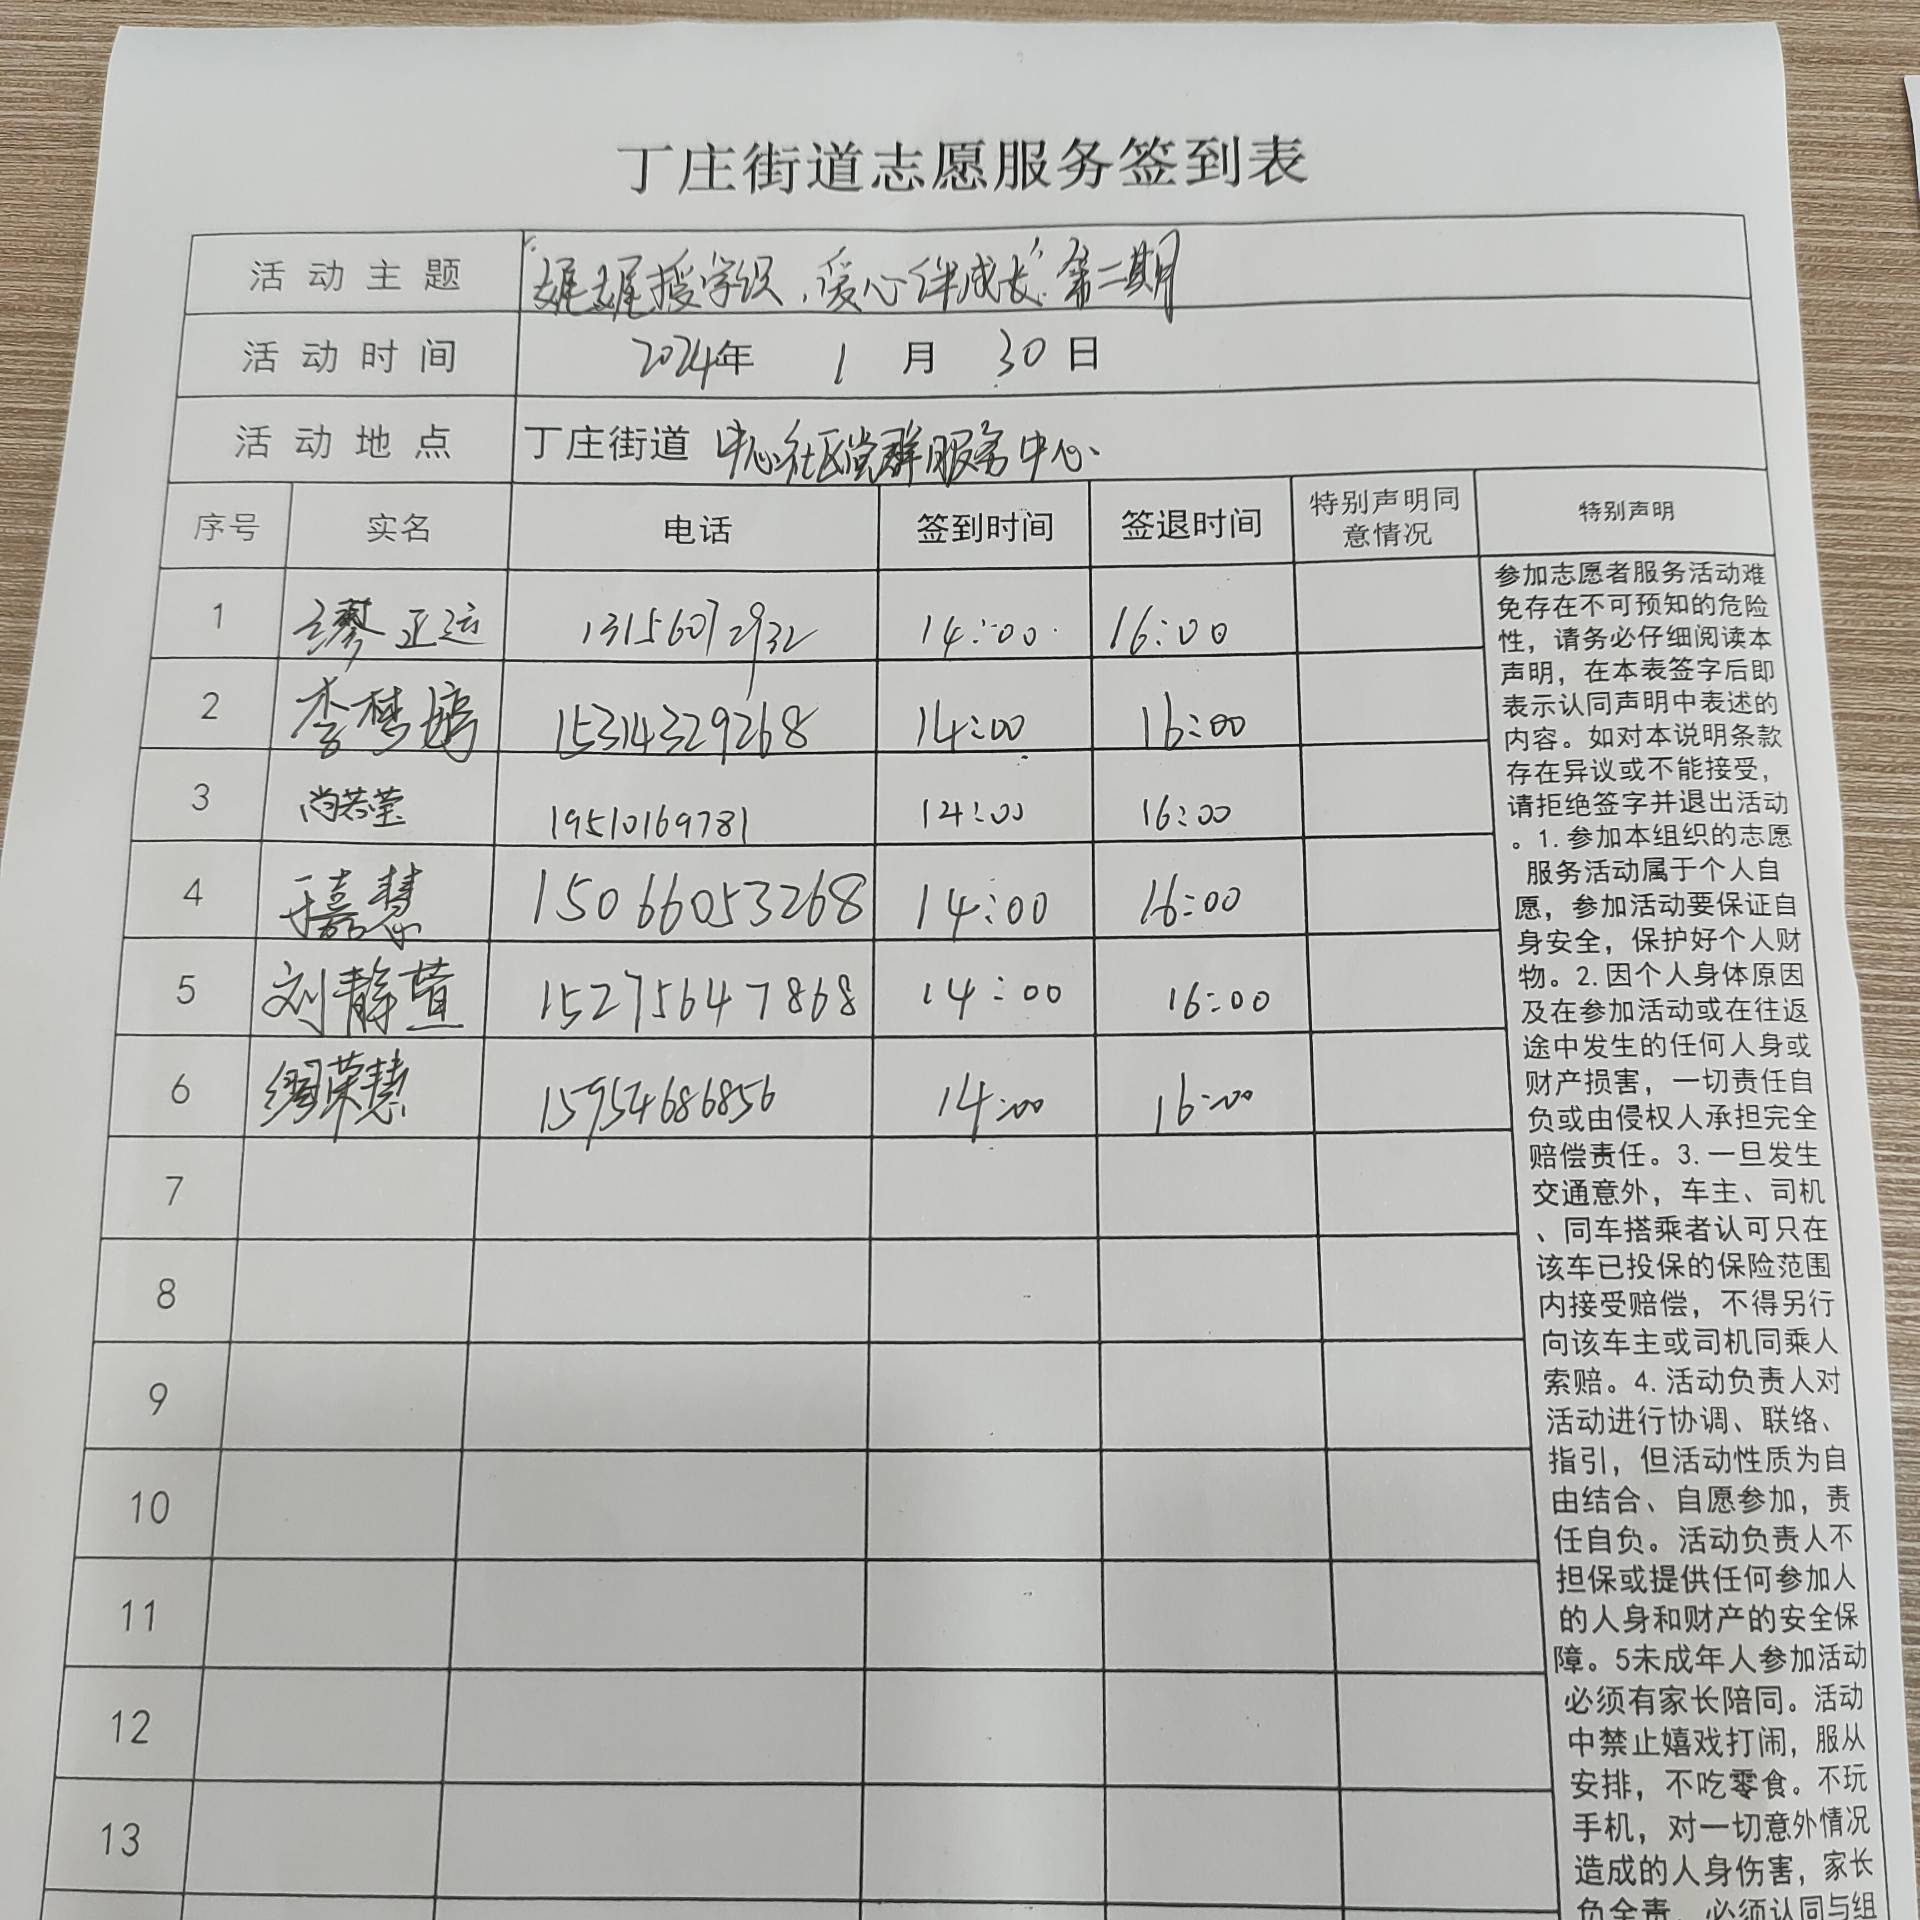 丁庄街道志愿服务签到表
活动主题 "娓娓授学识，爱心伴成长"第二期
活动时间 2024年 1 月 30 日
活动地点 丁庄街道 中心社区党群服务中心
序号 实名 电话 签到时间 签退时间 特别声明同意情况 特别声明
1 缪正运 13156072932 14:00 16:00
2 李梦婷 15314329268 14:00 16:00
3 尚若莹 19510169781 14:00 16:00
4 于嘉慧 15066053268 14:00 16:00
5 刘静萱 15275647868 14:00 16:00
6 缪荣慧 15954686856 14:00 16:00
7
8
9
10
11
12
13
参加志愿者服务活动难
免存在不可预知的危险
性，请务必仔细阅读本
声明，在本表签字后即
表示认同声明中表述的
内容。如对本说明条款
存在异议或不能接受，
请拒绝签字并退出活动
。1.参加本组织的志愿
服务活动属于个人自
愿，参加活动要保证自
身安全，保护好个人财
物。2.因个人身体原因
及在参加活动或在往返
途中发生的任何人身或
财产损害，一切责任自
负或由侵权人承担完全
赔偿责任。3.一旦发生
交通意外，车主、司机
、同车搭乘者认可只在
该车已投保的保险范围
内接受赔偿，不得另行
向该车主或司机同乘人
索赔。4.活动负责人对
活动进行协调、联络、
指引，但活动性质为自
由结合、自愿参加，责
任自负。活动负责人不
担保或提供任何参加人
的人身和财产的安全保
障。5未成年人参加活动
必须有家长陪同。活动
中禁止嬉戏打闹，服从
安排，不吃零食。不玩
手机，对一切意外情况
造成的人身伤害，家长
负全责，必须认同与组